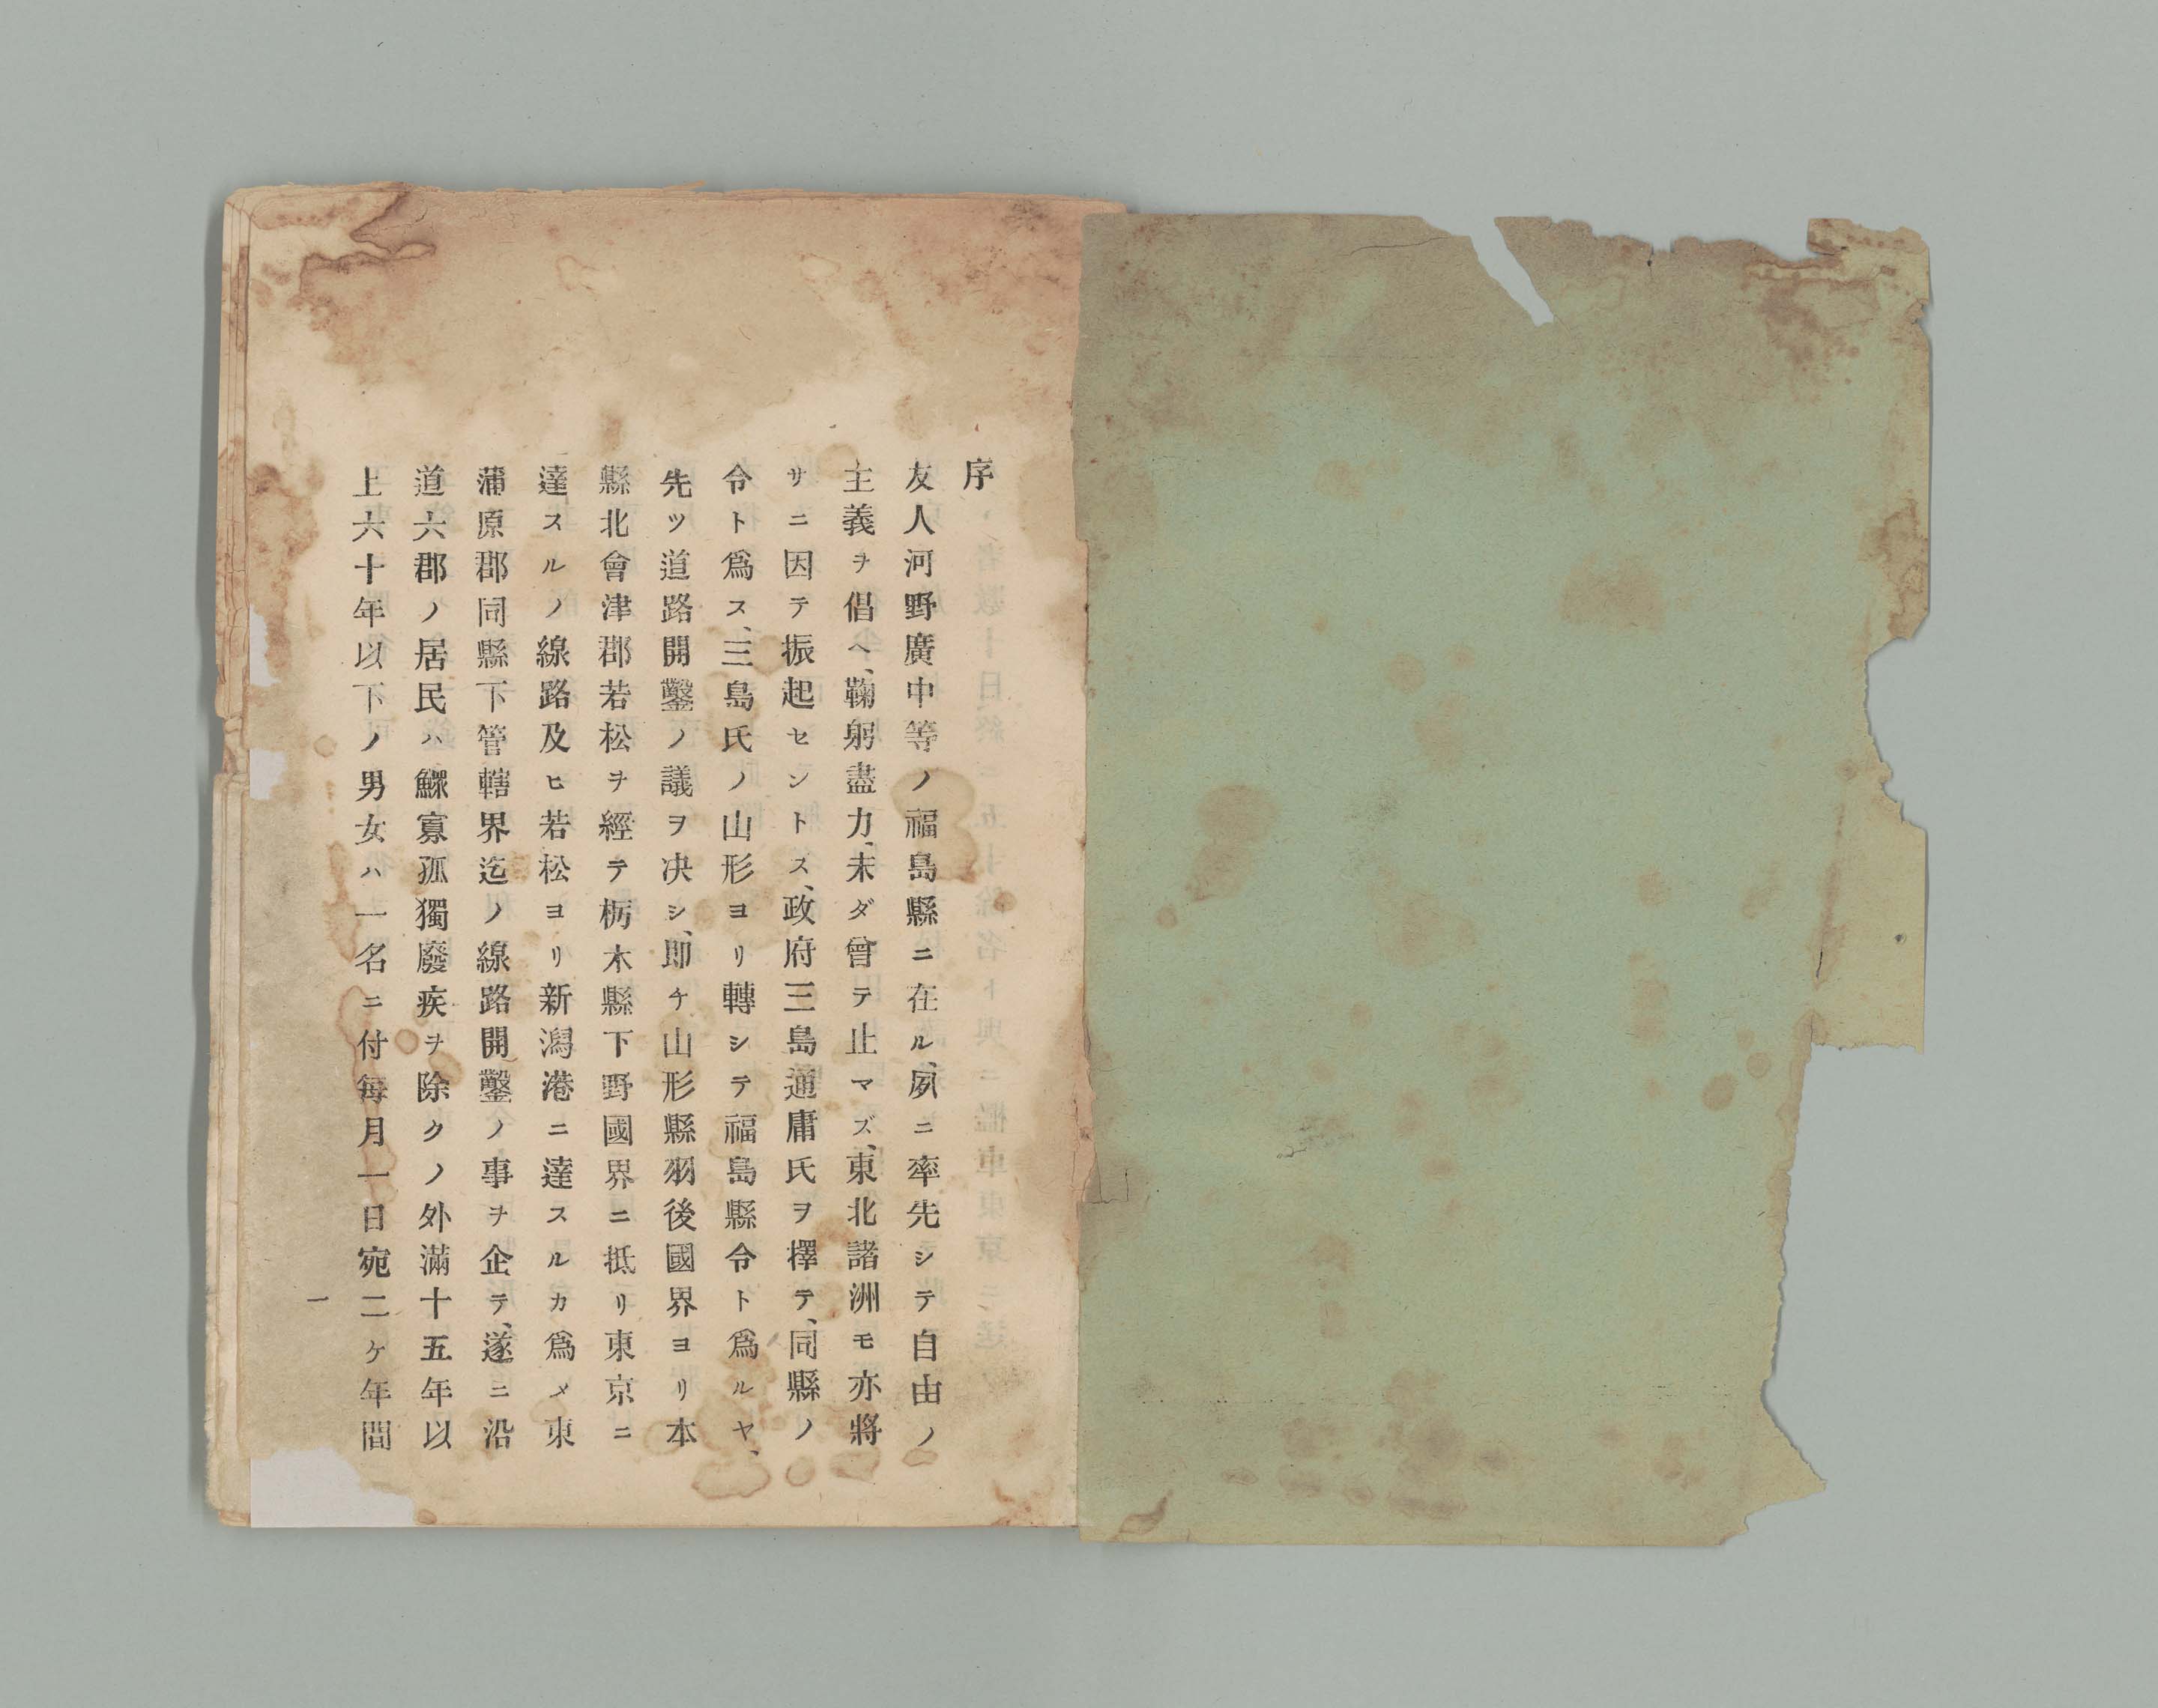 序
友人河野廣中等ノ福島縣ニ在ル、夙ニ率先シテ自由ノ
主義ヲ倡ヘ、鞠躬盡力、未ダ曾テ止マズ、東北諸洲モ亦將
サニ因テ振起セントス、政府三島通庸氏ヲ擇テ、同縣ノ
令ト爲ス、三島氏ノ山形ヨリ轉シテ福島縣令ト爲ルヤ、
先ツ道路開鑿ノ議ヲ决シ、即チ山形縣羽後國界ヨリ本
縣北會津郡若松ヲ經テ栃木縣下野國界ニ抵リ東京ニ
達スルノ線路及ヒ若松ヨリ新潟港ニ達スルカ爲メ東
蒲原郡同縣下管轄界迄ノ線路開鑿ノ事ヲ企テ、遂ニ沿
道六郡ノ居民ハ鰥寡孤獨廢疾ヲ除クノ外滿十五年以
上六十年以下ノ男女ハ一名ニ付每月一日宛二ケ年間
一